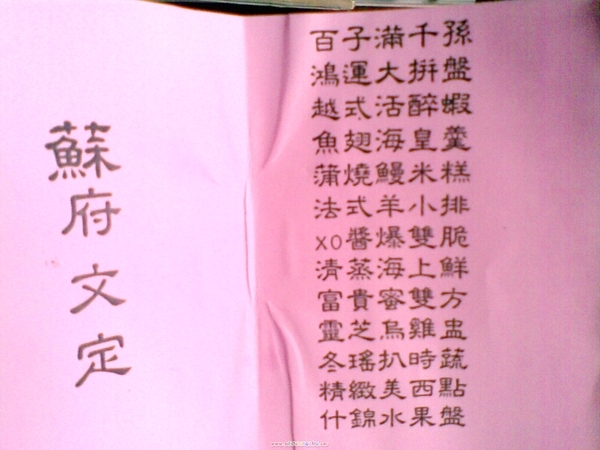 蘇府文定
百子滿千孫
鴻運大拼盤
越式活醉蝦
魚翅海皇羹
蒲燒鰻米糕
法式羊小排
XO醬爆雙脆
清蒸海上鮮
富貴蜜雙方
靈芝烏雞盅
冬瑤扒時蔬
精緻美西點
什錦水果盤